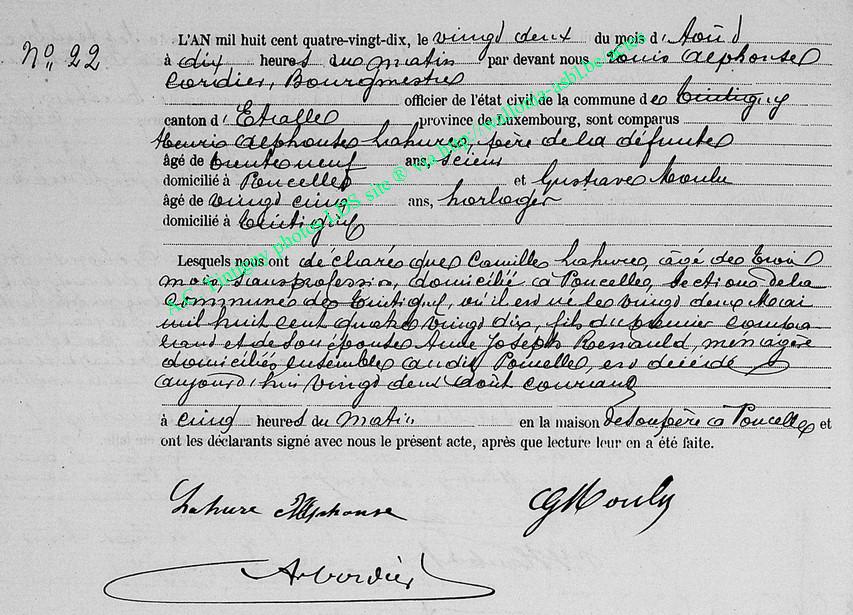 No 22
L'AN mil huit cent quatre-vingt-dix, le vingt deux du mois d'Août
à dix heures du matin par devant nous Louis Alphonse
Cordier, Bourgmestre
officier de l'état civil de la commune de Tintigny
canton d'Etalle province de Luxembourg, sont comparus
Henri Alphonse Lahure, père de la défunte
âgé de trente neuf ans, scieur
domicilié à Poncelle et Gustave Moulu
âgé de vingt cinq ans, horloger
domicilié à Tintigny
Lesquels nous ont déclaré que Camille Lahure, âgé de trois
mois, sans profession, domicilié à Poncelle, section de la
commune de Tintigny, où il est né le vingt deux Mai
mil huit cent quatre vingt dix, fils du premier compa
rant et de son épouse Joseph Renauld, ménagère
domiciliés ensemble au dit Poncelle, est décédé
aujourd'hui vingt deux Août courant
à cinq heures du matin en la maison de son père à Poncelle et
ont les déclarants signé avec nous le présent acte, après que lecture leur en a été faite.
Lahure Alphonse
GMoulu
Cordier
A.C. Tintigny photos LDS site ® via http://wallonia-asbl.be/actes